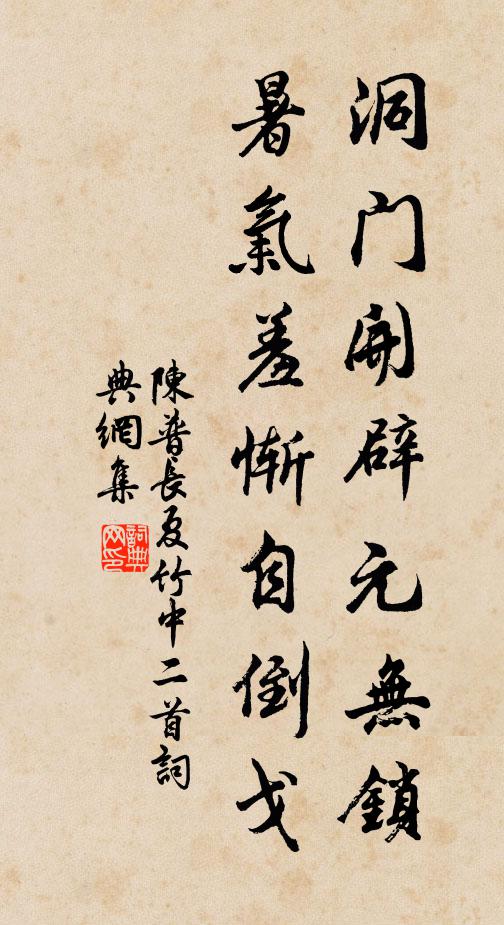 洞门開辟元無鎖
暑氣羞慚自倒戈
陳普長夏竹中二首詞
典網集
詞典网印